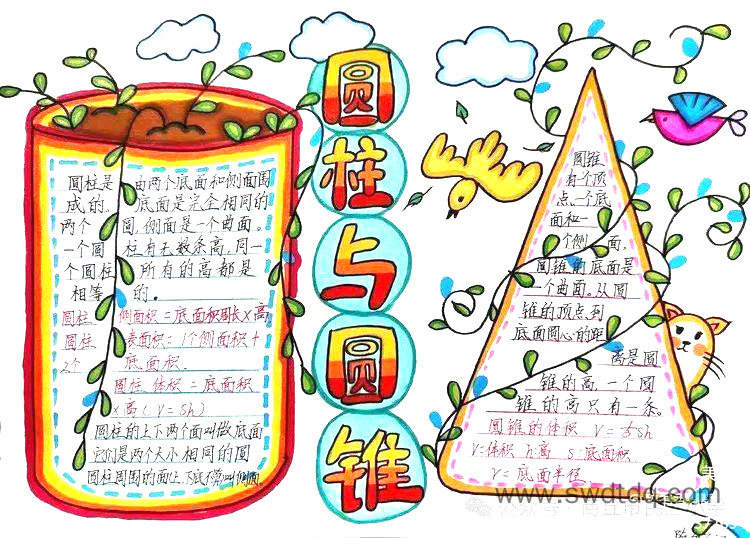 圆柱与圆锥
圆柱是由两个底面和侧面围
成的。底面是完全相同的
两个圆,侧面是一个曲面。
一个圆柱有无数条高,同一
个圆柱所有的高都是
相等的。
圆柱侧面积=底面周长×高
圆柱表面积=1个侧面积+
2个底面积.
圆柱体积=底面积
×高(V=sh)
圆柱的上下两个面叫做底面
它们是两个大小相同的圆
圆柱周围的面(上、下底除外)叫侧面
圆锥
有一个顶
点,一个底
面和一
个侧面.
圆锥的底面是
一个曲面.从圆
锥的顶点到
底面圆心的距
离是圆
锥的高一个圆
锥的高只有一条。
圆锥的体积 V=⅓sh
V=体积 h=高 s=底面积
r=底面半径
www.swdtdq.com